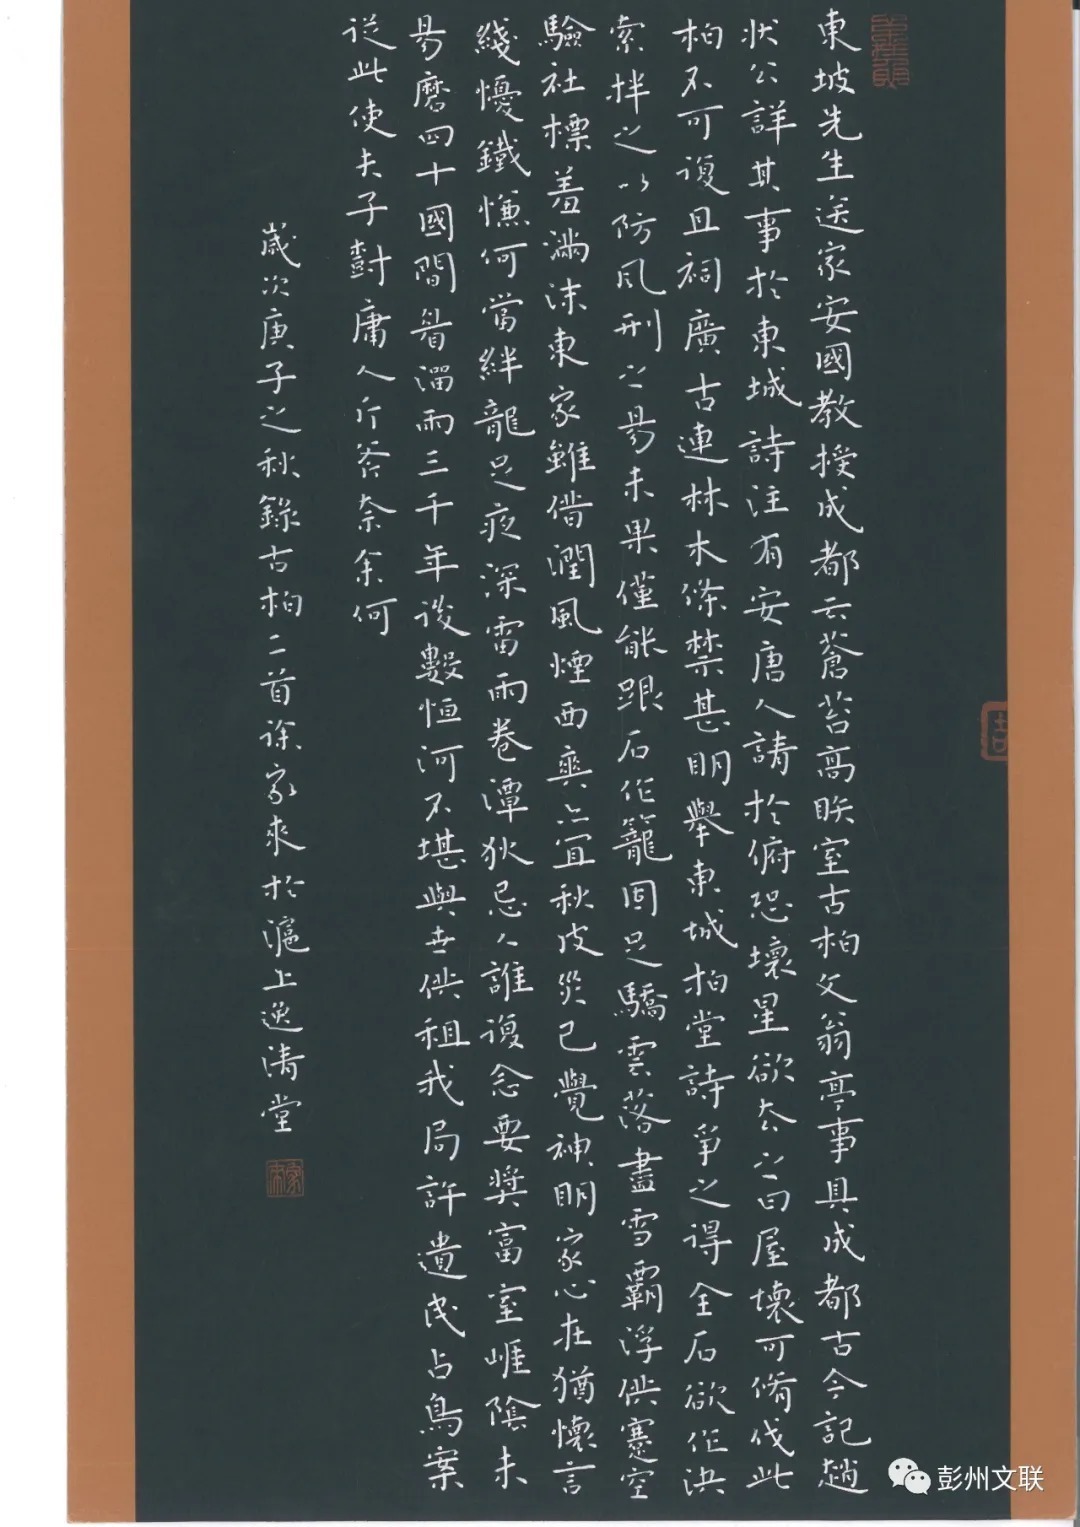 東坡先生送家安國教授成都云蒼苔高朕室古柏文翁亭事具成都古今記趙
狀公詳其事於東城詩注有安唐人請於俯恐壞星欲去之曰屋壞可脩伐此
柏不可復且祠廣古連林木條禁甚明舉東城柏堂詩爭之得全石欲作洪
索拌之以防風刑之易未果僅能跟石作籠固足驕雲落盡雪霸浮供蹇空
驗社標羞滿沫東家雖借潤風煙西爽亦宜秋皮災已覺神明家心在猶懷言
綫憂鐵慊何當絆龍足夜深雷雨卷潭狄忌人誰復念要獎富室崕陰未
易磨四十國間昝溜雨三千年後數恒河不堪與世供租我局許遺民占鳥案
從此使夫子對庸人斤斧奈余何
歲次庚子之秋錄古柏二首徐家來於滬上逸濤堂
彭州文联